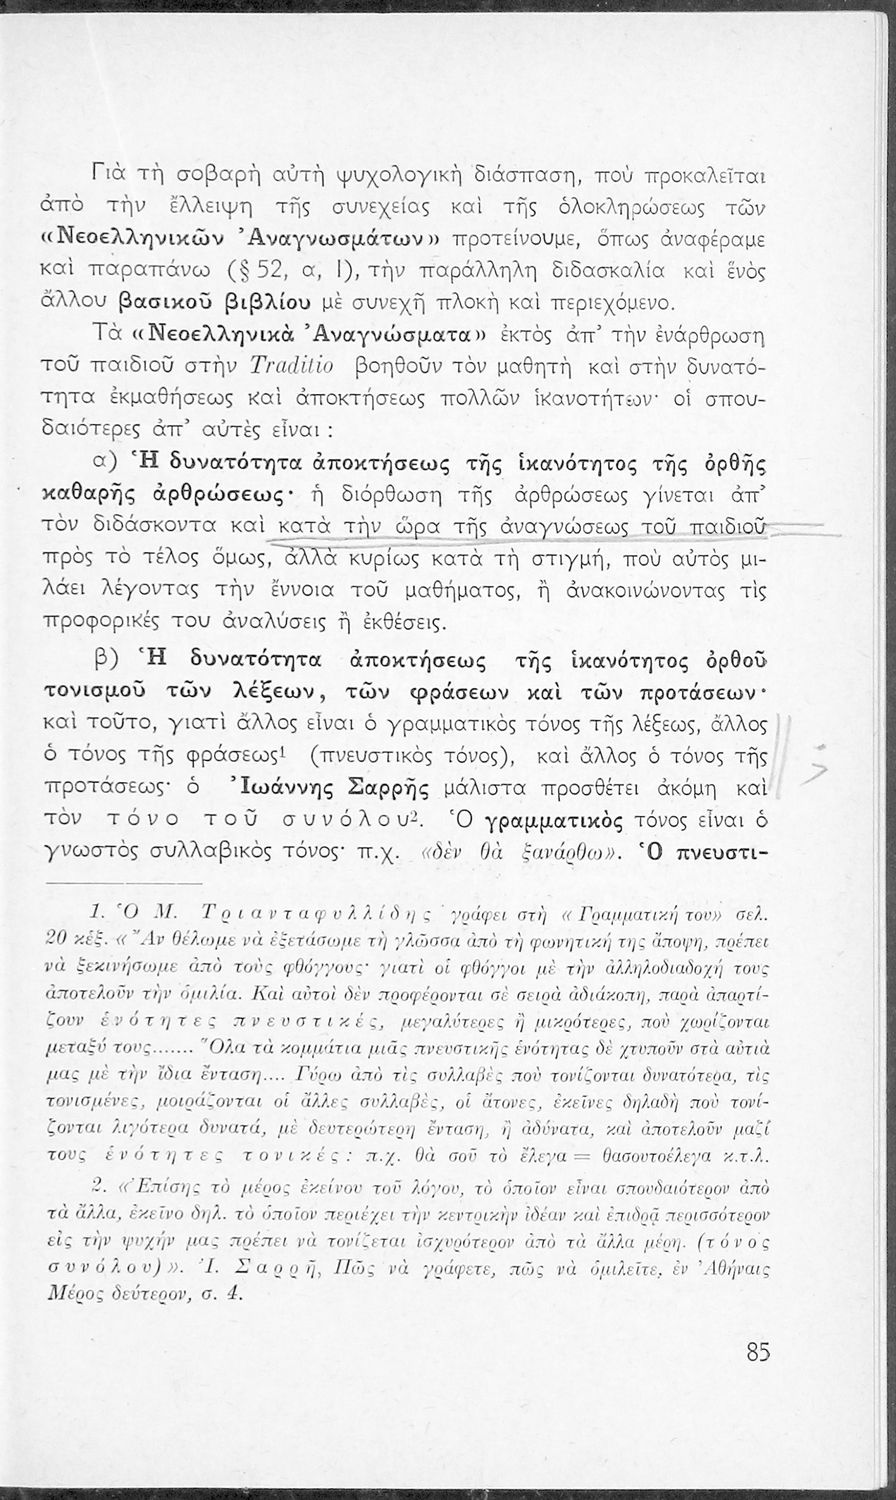 Γιὰ τὴ σοβαρὴ αὐτὴ ψυχολογικὴ διάσπαση, ποὺ προκαλεῖται
ἀπὸ τὴν ἔλλειψη τῆς συνεχείας καὶ τῆς ὁλοκληρώσεως τῶν
«Νεοελληνικῶν Ἀναγνωσμάτων» προτείνουμε, ὅπως ἀναφέραμε
καὶ παραπάνω (§ 52, α, Ι), τὴν παράλληλη διδασκαλία καὶ ἑνὸς
ἄλλου βασικοῦ βιβλίου μὲ συνεχῆ πλοκὴ καὶ περιεχόμενο.
Τὰ «Νεοελληνικὰ Ἀναγνώσματα» ἐκτὸς ἀπ’ τὴν ἐνάρθρωση
τοῦ παιδιοῦ στὴν Traditio βοηθοῦν τὸν μαθητὴ καὶ στὴν δυνατό-
τητα ἐκμαθήσεως καὶ ἀποκτήσεως πολλῶν ἱκανοτήτων· οἱ σπου-
δαιότερες ἀπ’ αὐτὲς εἶναι :
α) Ἡ δυνατότητα ἀποκτήσεως τῆς ἱκανότητος τῆς ὀρθῆς
καθαρῆς ἀρθρώσεως· ἡ διόρθωση τῆς ἀρθρώσεως γίνεται ἀπ’
τὸν διδάσκοντα καὶ κατὰ τὴν ὥρα τῆς ἀναγνώσεως τοῦ παιδιοῦ
πρὸς τὸ τέλος ὅμως, ἀλλὰ κυρίως κατὰ τὴ στιγμή, ποὺ αὐτὸς μι-
λάει λέγοντας τὴν ἔννοια τοῦ μαθήματος, ἢ ἀνακοινώνοντας τὶς
προφορικές του ἀναλύσεις ἢ ἐκθέσεις.
β) Ἡ δυνατότητα ἀποκτήσεως τῆς ἱκανότητος ὀρθοῦ
τονισμοῦ τῶν λέξεων, τῶν φράσεων καὶ τῶν προτάσεων·
καὶ τοῦτο, γιατὶ ἄλλος εἶναι ὁ γραμματικὸς τόνος τῆς λέξεως, ἄλλος
ὁ τόνος τῆς φράσεως¹ (πνευστικὸς τόνος), καὶ ἄλλος ὁ τόνος τῆς
προτάσεως· ὁ Ἰωάννης Σαρρῆς μάλιστα προσθέτει ἀκόμη καὶ
τὸν τόνο τοῦ συνόλου². Ὁ γραμματικὸς τόνος εἶναι ὁ
γνωστὸς συλλαβικὸς τόνος· π.χ. «δὲν θὰ ξανάρθω». Ὁ πνευστι-
1. Ὁ Μ. Τριανταφυλλίδης γράφει στὴ «Γραμματική του» σελ.
20 κἑξ. «Ἂν θέλωμε νὰ ἐξετάσωμε τὴ γλῶσσα ἀπὸ τὴ φωνητική της ἄποψη, πρέπει
νὰ ξεκινήσωμε ἀπὸ τοὺς φθόγγους· γιατὶ οἱ φθόγγοι μὲ τὴν ἀλληλοδιαδοχή τους
ἀποτελοῦν τὴν ὁμιλία. Καὶ αὐτοὶ δὲν προφέρονται σὲ σειρὰ ἀδιάκοπη, παρὰ ἀπαρτί-
ζουν ἑνότητες πνευστικές, μεγαλύτερες ἢ μικρότερες, ποὺ χωρίζονται
μεταξύ τους....... Ὅλα τὰ κομμάτια μιᾶς πνευστικῆς ἑνότητας δὲ χτυποῦν στὰ αὐτιά
μας μὲ τὴν ἴδια ἔνταση.... Γύρω ἀπὸ τὶς συλλαβὲς ποὺ τονίζονται δυνατότερα, τὶς
τονισμένες, μοιράζονται οἱ ἄλλες συλλαβές, οἱ ἄτονες, ἐκεῖνες δηλαδὴ ποὺ τονί-
ζονται λιγότερα δυνατά, μὲ δευτερώτερη ἔνταση, ἢ ἀδύνατα, καὶ ἀποτελοῦν μαζί
τους ἑνότητες τονικές : π.χ. θὰ σοῦ τὸ ἔλεγα = θασουτοέλεγα κ.τ.λ.
2. «Ἐπίσης τὸ μέρος ἐκείνου τοῦ λόγου, τὸ ὁποῖον εἶναι σπουδαιότερον ἀπὸ
τὰ ἄλλα, ἐκεῖνο δηλ. τὸ ὁποῖον περιέχει τὴν κεντρικὴν ἰδέαν καὶ ἐπιδρᾷ περισσότερον
εἰς τὴν ψυχήν μας πρέπει νὰ τονίζεται ἰσχυρότερον ἀπὸ τὰ ἄλλα μέρη. (τόνος
συνόλου)». Ἰ. Σαρρῆ, Πῶς νὰ γράφετε, πῶς νὰ ὁμιλεῖτε, ἐν Ἀθήναις
Μέρος δεύτερον, σ. 4.
85